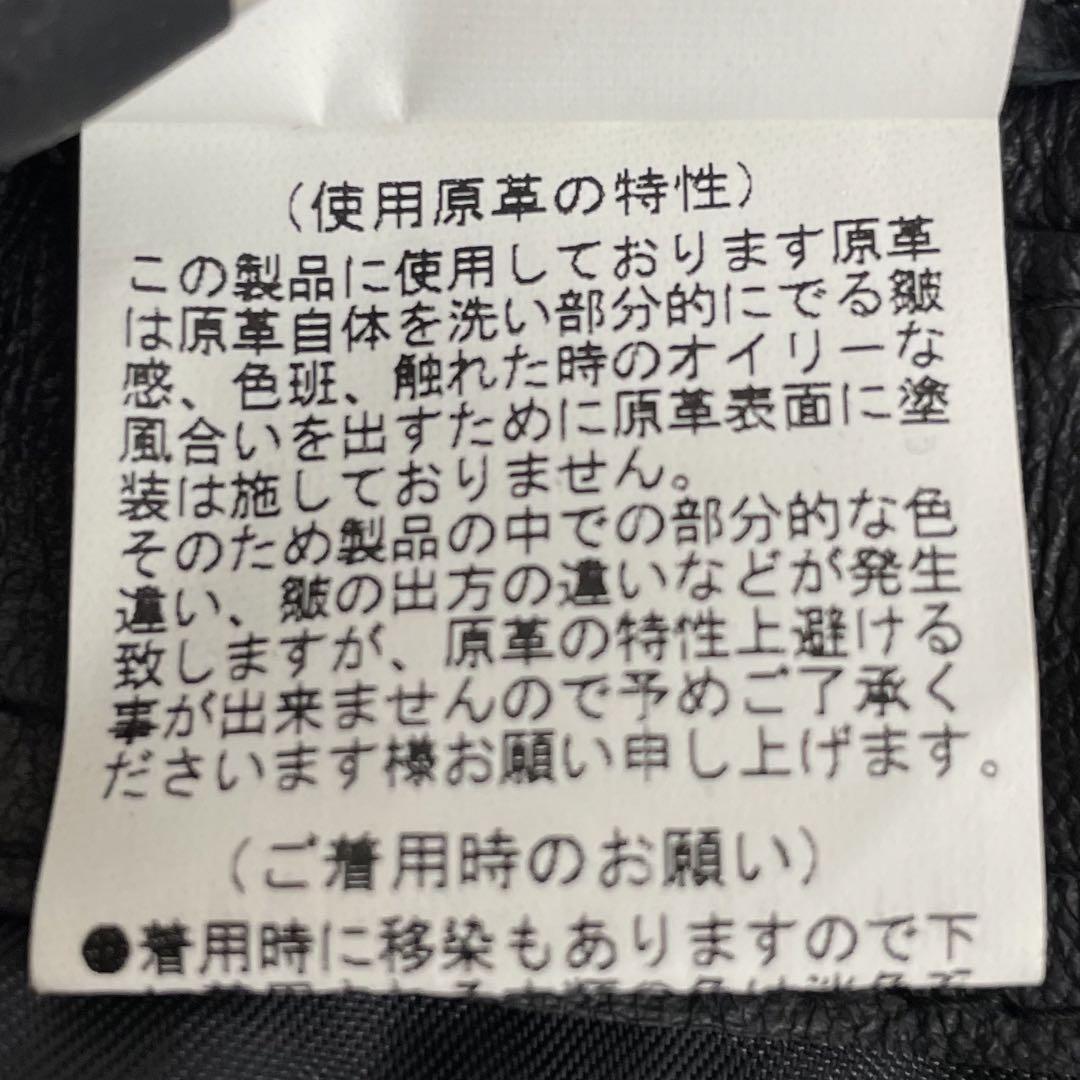 (使用原革の特性)
この製品に使用しております原革
は原革自体を洗い部分的にでる皺
感、色班、触れた時のオイリーな
風合いを出すために原革表面に塗
装は施しておりません。
そのため製品の中での部分的な色
違い、皺の出方の違いなどが発生
致しますが、原革の特性上避ける
事が出来ませんので予めご了承く
ださいます様お願い申し上げます。
(ご着用時のお願い)
●着用時に移染もありますので下